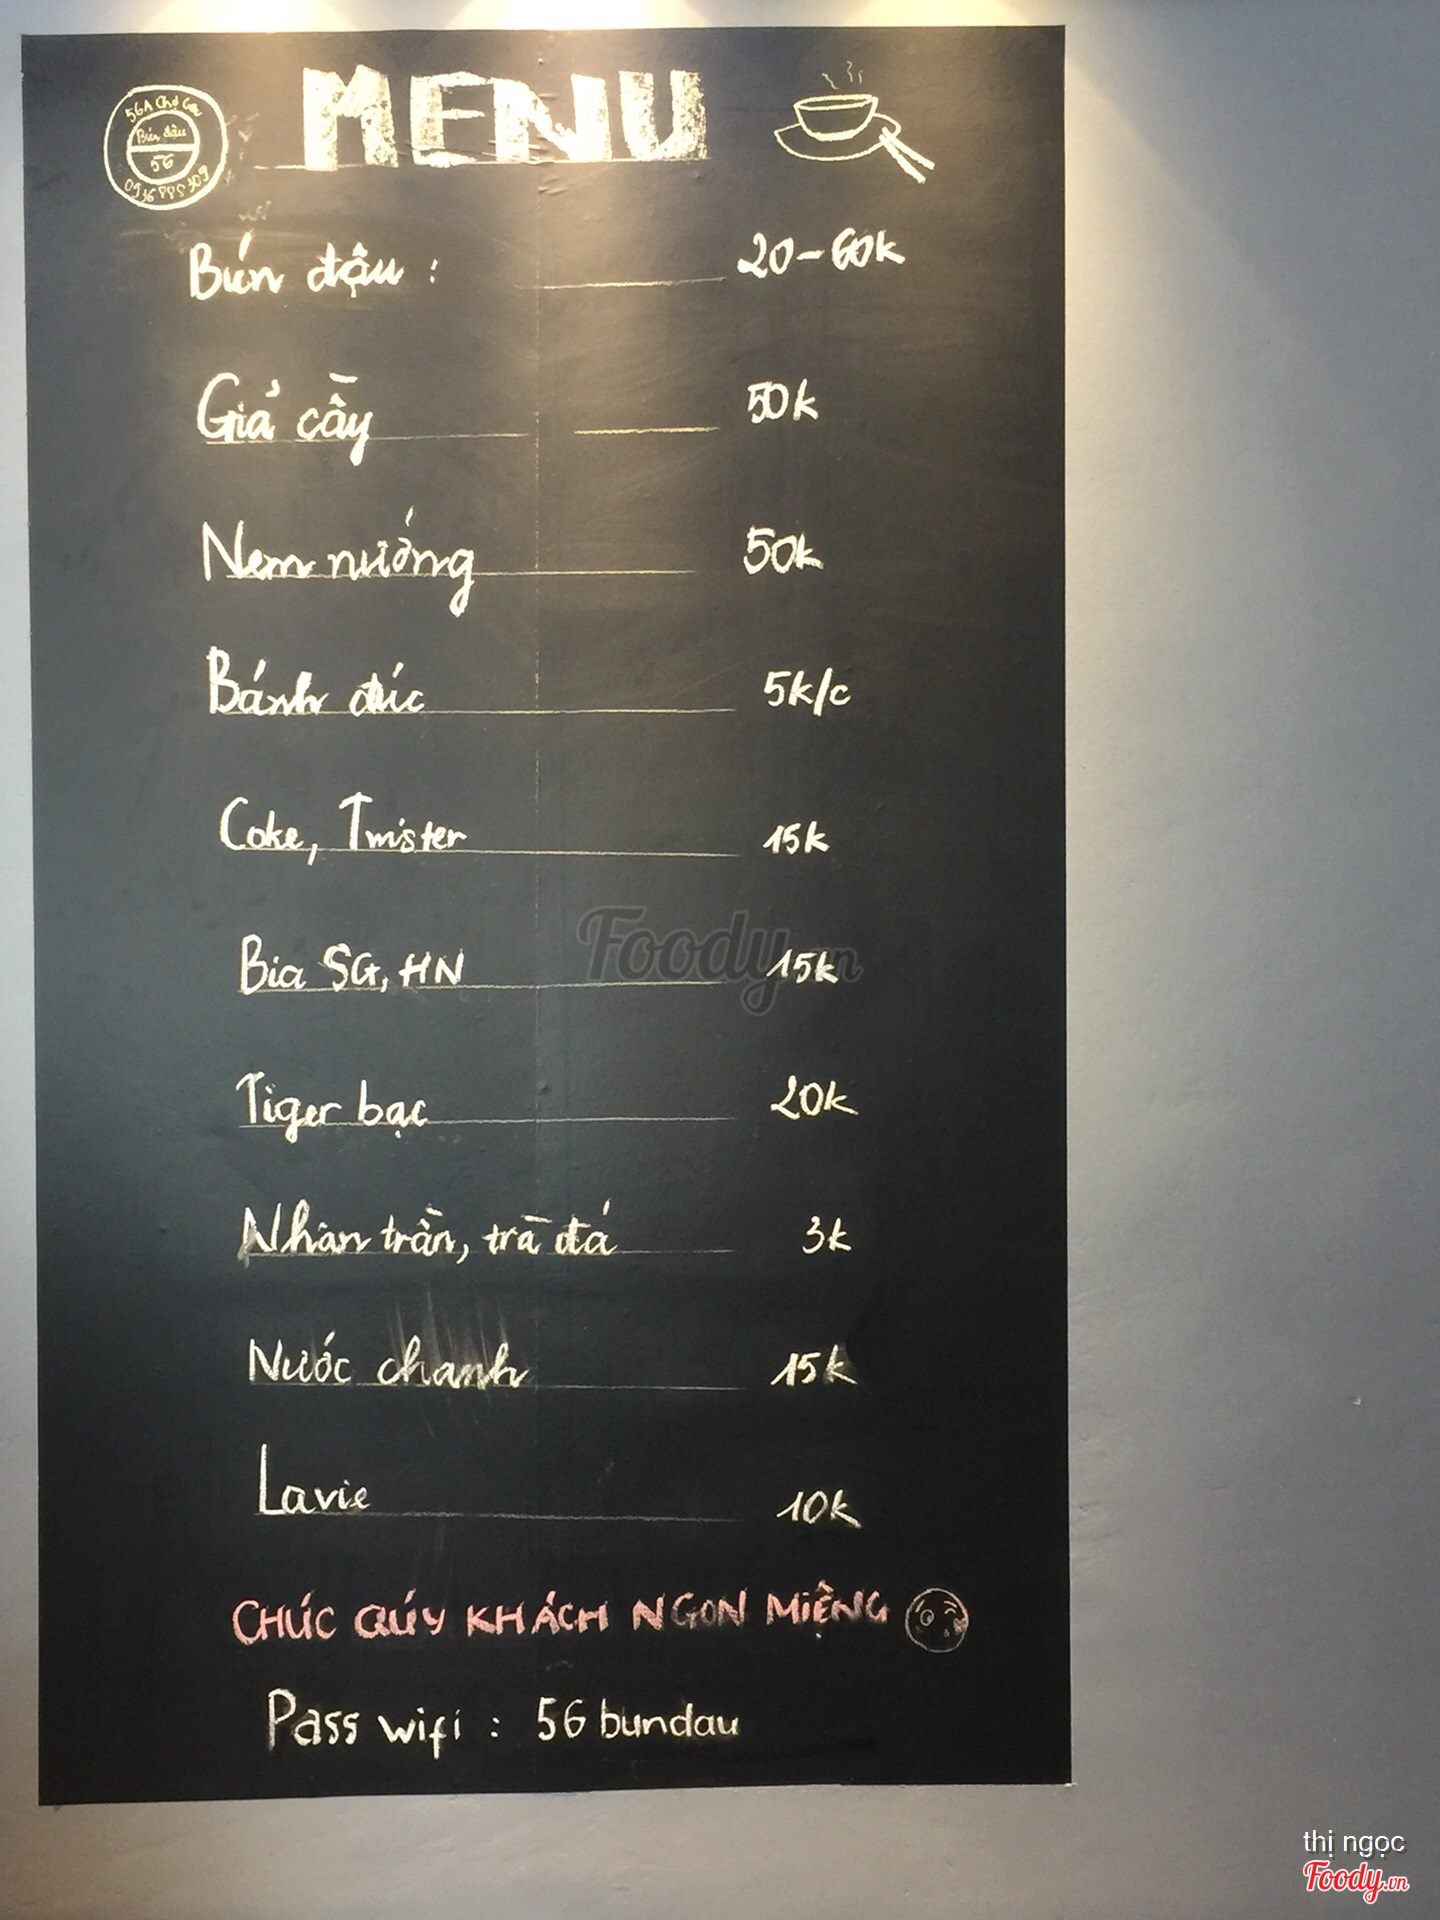 MENU
56A Chợ
Bún đậu
56
Bún đậu : 20-60k
Giả cầy 50k
Nem nướng 50k
Bánh đúc 5k/c
Coke, Twister 15k
Bia SG, HN 15k
Tiger bạc 20k
Nhân trần, trà đá 3k
Nước chanh 15k
Lavie 10k
CHÚC QÚY KHÁCH NGON MIỆNG
Pass wifi : 56 bundau
Foody.vn
thị ngọc
Foody.vn